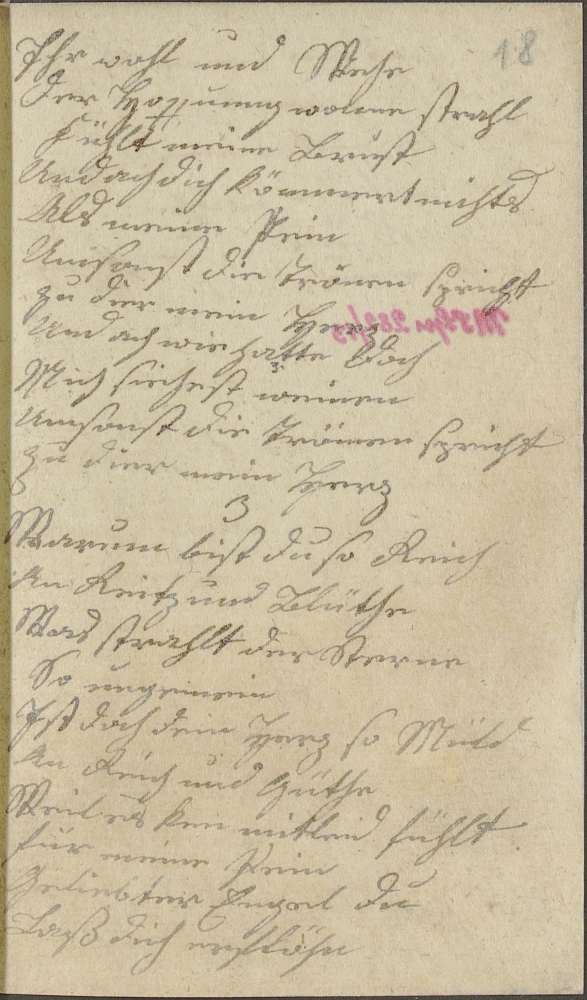 18
Ihr wohl und Wehe
Der Hoffnung wonne strahl
Kühlt meine Brust
Und ach dich kömmert nichts
Als meine Pein
Umsonst die Trönen spricht
zu dier mein Herz
Und ach wie hatte doch
Mich siehest weinen
Umsonst die Trönen spricht
zu dier mein Herz
3
Warum bist du so Reich
An Reitz und Blüthe
Was strahlt der Sterne
So ungemein
Ist doch dein Herz so
An Reich und Güthe
Weil es ken mitleid fühlt
für meine Pein
Geliebter Engel du
Laß dich erflöhn